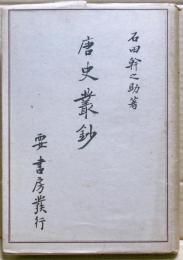 石田幹之助著
唐史叢鈔
要書房発行